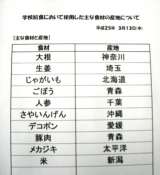 学校給食において使用した主な食材の産地について
平成25年 3月13日(水)
【主な食材と産地】
食材 産地
大根 神奈川
生姜 埼玉
じゃがいも 北海道
ごぼう 青森
人参 千葉
さやいんげん 沖縄
デコポン 愛媛
豚肉 青森
メカジキ 太平洋
米 新潟